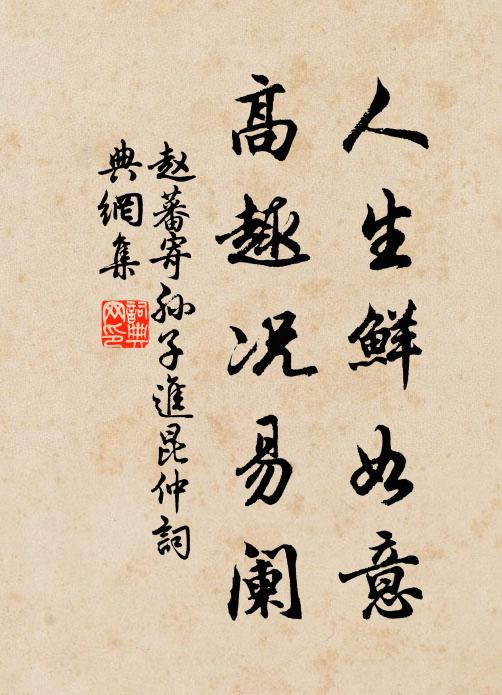 人生鮮如意
高趣况易阑
赵蕃寄孙子進昆仲詞
典網集
詞典网印